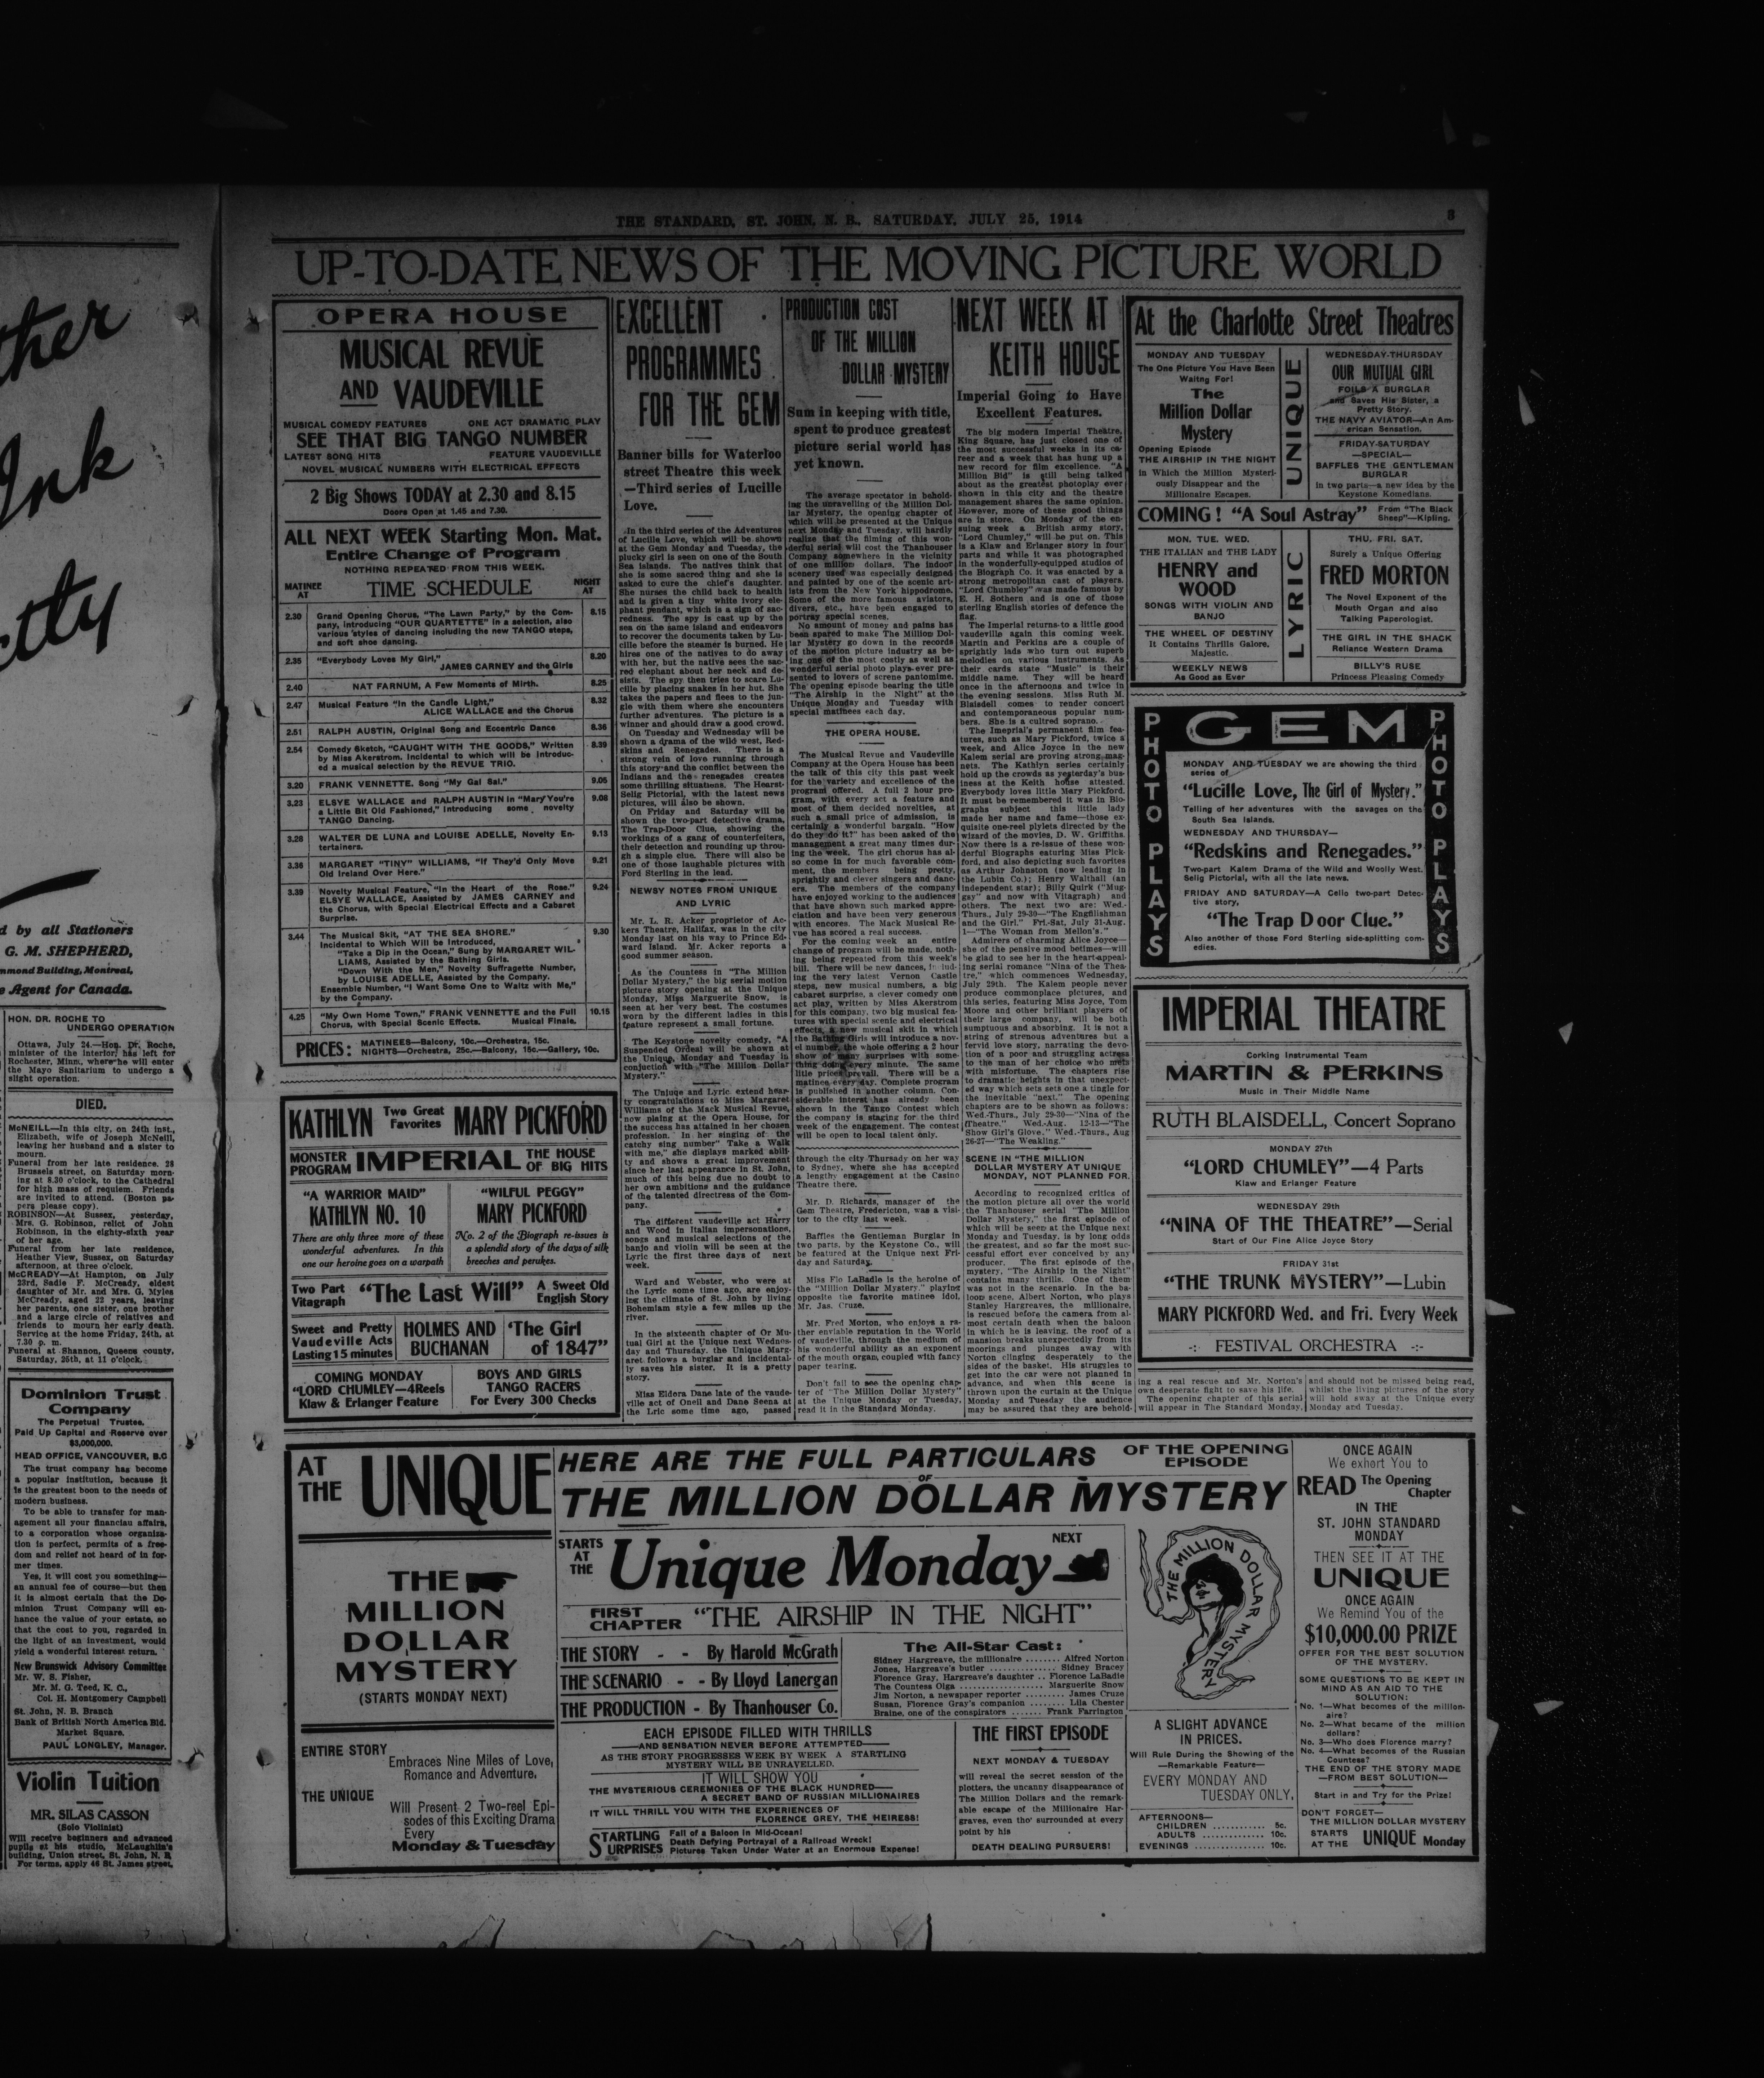 THE STANDARD, ST. JOHN, N. B., SATURDAY, JULY 25, 1914
3
UP-TO-DATE NEWS OF THE MOVING PICTURE WORLD
ther
Ink
d by all Stationers
G. M. SHEPHERD,
mmond Building, Montreal,
e Agent for Canada.
HON. DR. ROCHE TO
UNDERGO OPERATION
Ottawa, July 24.—Hon. Dr. Roche,
minister of the interior, has left for
Rochester, Minn., where he will enter
the Mayo Sanitarium to undergo a
slight operation.
DIED.
McNEILL—In this city, on 24th inst.,
Elizabeth, wife of Joseph McNeill,
leaving her husband and a sister to
mourn.
Funeral from her late residence, 28
Brussels street, on Saturday morn-
ing at 8.30 o'clock, to the Cathedral
for high mass of requiem. Friends
are invited to attend. (Boston pa-
pers please copy).
ROBINSON—At Sussex, yesterday,
Mrs. G. Robinson, relict of John
Robinson, in the eighty-sixth year
of her age.
Funeral from her late residence,
Heather View, Sussex, on Saturday
afternoon, at three o'clock.
McCREADY—At Hampton, on July
23rd, Sadie F. McCready, eldest
daughter of Mr. and Mrs. G. Myles
McCready, aged 22 years, leaving
her parents, one sister, one brother
and a large circle of relatives and
friends to mourn her early death.
Service at the home Friday, 24th, at
7.30 p. m.
Funeral at Shannon, Queens county,
Saturday, 25th, at 11 o'clock.
Dominion Trust
Company
The Perpetual Trustee.
Paid Up Capital and Reserve over
$3,000,000.
HEAD OFFICE, VANCOUVER, B.C
The trust company has become
a popular institution, because it
is the greatest boon to the needs of
modern business.
To be able to transfer for man-
agement all your financiau affairs,
to a corporation whose organiza-
tion is perfect, permits of a free-
dom and relief not heard of in for-
mer times.
Yes, it will cost you something—
an annual fee of course—but then
it is almost certain that the Do-
minion Trust Company will en-
hance the value of your estate, so
that the cost to you, regarded in
the light of an investment, would
yield a wonderful interest return.
New Brunswick Advisory Committee
Mr. W. S. Fisher,
Mr. M. G. Teed, K. C.,
Col. H. Montgomery Campbell
St. John, N. B. Branch
Bank of British North America Bld.
Market Square.
PAUL LONGLEY, Manager.
Violin Tuition
MR. SILAS CASSON
(Solo Violinist)
Will receive beginners and advanced
pupils at his studio, McLaughlin's
building, Union street, St. John, N. B.
For terms, apply 46 St. James street.
OPERA HOUSE
MUSICAL REVUE
AND VAUDEVILLE
MUSICAL COMEDY FEATURES ONE ACT DRAMATIC PLAY
SEE THAT BIG TANGO NUMBER
LATEST SONG HITS FEATURE VAUDEVILLE
NOVEL MUSICAL NUMBERS WITH ELECTRICAL EFFECTS
2 Big Shows TODAY at 2.30 and 8.15
Doors Open at 1.45 and 7.30.
ALL NEXT WEEK Starting Mon. Mat.
Entire Change of Program
NOTHING REPEATED FROM THIS WEEK.
MATINEE AT TIME SCHEDULE NIGHT AT
2.30 Grand Opening Chorus, "The Lawn Party," by the Com- 8.15
pany, introducing "OUR QUARTETTE" in a selection, also
various styles of dancing including the new TANGO steps,
and soft shoe dancing.
2.35 "Everybody Loves My Girl," 8.20
JAMES CARNEY and the Girls
2.40 NAT FARNUM, A Few Moments of Mirth. 8.25
2.47 Musical Feature "In the Candle Light," 8.32
ALICE WALLACE and the Chorus
2.51 RALPH AUSTIN, Original Song and Eccentric Dance 8.36
2.54 Comedy Sketch, "CAUGHT WITH THE GOODS," Written 8.39
by Miss Akerstrom. Incidental to which will be introduc-
ed a musical selection by the REVUE TRIO.
3.20 FRANK VENNETTE. Song "My Gal Sal." 9.05
3.23 ELSYE WALLACE and RALPH AUSTIN in "Mary You're 9.08
a Little Bit Old Fashioned," Introducing some novelty
TANGO Dancing.
3.28 WALTER DE LUNA and LOUISE ADELLE, Novelty En- 9.13
tertainers.
3.36 MARGARET "TINY" WILLIAMS, "If They'd Only Move 9.21
Old Ireland Over Here."
3.39 Novelty Musical Feature, "In the Heart of the Rose." 9.24
ELSYE WALLACE, Assisted by JAMES CARNEY and
the Chorus, with Special Electrical Effects and a Cabaret
Surprise.
3.44 The Musical Skit, "AT THE SEA SHORE." 9.30
Incidental to Which Will be Introduced,
"Take a Dip in the Ocean," Sung by MARGARET WIL-
LIAMS, Assisted by the Bathing Girls.
"Down With the Men," Novelty Suffragette Number,
by LOUISE ADELLE, Assisted by the Company.
Ensemble Number, "I Want Some One to Waltz with Me,"
by the Company.
4.25 "My Own Home Town," FRANK VENNETTE and the Full 10.15
Chorus, with Special Scenic Effects. Musical Finale.
PRICES: MATINEES—Balcony, 10c.—Orchestra, 15c.
NIGHTS—Orchestra, 25c.—Balcony, 15c.—Gallery, 10c.
KATHLYN Two Great Favorites MARY PICKFORD
MONSTER PROGRAM IMPERIAL THE HOUSE OF BIG HITS
"A WARRIOR MAID"
KATHLYN NO. 10
There are only three more of these
wonderful adventures. In this
one our heroine goes on a warpath
"WILFUL PEGGY"
MARY PICKFORD
No. 2 of the Biograph re-issues is
a splendid story of the days of silk
breeches and perukes.
Two Part Vitagraph "The Last Will" A Sweet Old English Story
Sweet and Pretty
Vaudeville Acts
Lasting 15 minutes
HOLMES AND
BUCHANAN
'The Girl
of 1847"
COMING MONDAY
"LORD CHUMLEY—4Reels
Klaw & Erlanger Feature
BOYS AND GIRLS
TANGO RACERS
For Every 300 Checks
EXCELLENT
PROGRAMMES
FOR THE GEM
Banner bills for Waterloo
street Theatre this week
—Third series of Lucille
Love.
In the third series of the Adventures
of Lucille Love, which will be shown
at the Gem Monday and Tuesday, the
plucky girl is seen on one of the South
Sea islands. The natives think that
she is some sacred thing and she is
asked to cure the chief's daughter.
She nurses the child back to health
and is given a tiny white ivory ele-
phant pendant, which is a sign of sac-
redness. The spy is cast up by the
sea on the same island and endeavors
to recover the documents taken by Lu-
cille before the steamer is burned. He
hires one of the natives to do away
with her, but the native sees the sac-
red elephant about her neck and de-
sists. The spy then tries to scare Lu-
cille by placing snakes in her hut. She
takes the papers and flees to the jun-
gle with them where she encounters
further adventures. The picture is a
winner and should draw a good crowd.
On Tuesday and Wednesday will be
shown a drama of the wild west, Red-
skins and Renegades. There is a
strong vein of love running through
this story and the conflict between the
Indians and the renegades creates
some thrilling situations. The Hearst-
Selig Pictorial, with the latest news
pictures, will also be shown.
On Friday and Saturday will be
shown the two-part detective drama,
The Trap-Door Clue, showing the
workings of a gang of counterfeiters,
their detection and rounding up throu-
gh a simple clue. There will also be
one of those laughable pictures with
Ford Sterling in the lead.
NEWSY NOTES FROM UNIQUE
AND LYRIC
Mr. L. R. Acker proprietor of Ac-
kers Theatre, Halifax, was in the city
Monday last on his way to Prince Ed-
ward Island. Mr. Acker reports a
good summer season.
As the Countess in "The Million
Dollar Mystery," the big serial motion
picture story opening at the Unique
Monday, Miss Marguerite Snow, is
seen at her very best. The costumes
worn by the different ladies in this
feature represent a small fortune.
The Keystone novelty comedy, "A
Suspended Ordeal will be shown at
the Unique, Monday and Tuesday in
conjuction with "The Million Dollar
Mystery."
The Unique and Lyric extend hear-
ty congratulations to Miss Margaret
Williams of the Mack Musical Revue,
now plaing at the Opera House, for
the success has attained in her chosen
profession. In her singing of the
catchy sing number" Take a Walk
with me," she displays marked abili-
ty and shows a great improvement
since her last appearance in St. John,
much of this being due no doubt to
her own ambitions and the guidance
of the talented directress of the Com-
pany.
The different vaudeville act Harry
and Wood in Italian impersonations,
songs and musical selections of the
banjo and violin will be seen at the
Lyric the first three days of next
week.
Ward and Webster, who were at
the Lyric some time ago, are enjoy-
ing the climate of St. John by living
Bohemian style a few miles up the
river.
In the sixteenth chapter of Or Mu-
tual Girl at the Unique next Wednes-
day and Thursday, the Unique Marg-
aret follows a burglar and incidental-
ly saves his sister. It is a pretty
story.
Miss Eldora Dane late of the vaude-
ville act of Oneil and Dane Seena at
the Lric some time ago, passed
PRODUCTION COST
OF THE MILLION
DOLLAR MYSTERY
Sum in keeping with title,
spent to produce greatest
picture serial world has
yet known.
The average spectator in behold-
ing the unravelling of the Million Dol-
lar Mystery, the opening chapter of
which will be presented at the Unique
next Monday and Tuesday, will hardly
realize that the filming of this won-
derful serial will cost the Thanhouser
Company somewhere in the vicinity
of one million dollars. The indoor
scenery used was especially designed
and painted by one of the scenic art-
ists from the New York hippodrome.
Some of the more famous aviators,
divers, etc., have been engaged to
portray special scenes.
No amount of money and pains has
been spared to make The Million Dol-
lar Mystery go down in the records
of the motion picture industry as be-
ing one of the most costly as well as
wonderful serial photo plays ever pre-
sented to lovers of screne pantomime.
The opening episode bearing the title
"The Airship in the Night" at the
Unique Monday and Tuesday with
special matinees each day.
THE OPERA HOUSE.
The Musical Revue and Vaudeville
Company at the Opera House has been
the talk of this city this past week
for the variety and excellence of the
program offered. A full 2 hour pro-
gram, with every act a feature and
most of them decided novelties, at
such a small price of admission, is
certainly a wonderful bargain. "How
do they do it?" has been asked of the
management a great many times dur-
ing the week. The girl chorus has al-
so come in for much favorable com-
ment, the members being pretty,
sprightly and clever singers and danc-
ers. The members of the company
have enjoyed working to the audiences
that have shown such marked appre-
ciation and have been very generous
with encores. The Mack Musical Re-
vue has scored a real success.
For the coming week an entire
change of program will be made, noth-
ing being repeated from this week's
bill. There will be new dances, includ-
ing the very latest Vernon Castle
steps, new musical numbers, a big
cabaret surprise, a clever comedy one
act play, written by Miss Akerstrom
for this company, two big musical fea-
tures with special scenic and electrical
effects, a new musical skit in which
the Bathing Girls will introduce a nov-
el number, the whole offering a 2 hour
show of many surprises with some-
thing doing every minute. The same
little prices prevail. There will be a
matinee every day. Complete program
is published in another column. Con-
siderable interest has already been
shown in the Tango Contest which
the company is staging for the third
week of the engagement. The contest
will be open to local talent only.
through the city Thursady on her way
to Sydney, where she has accepted
a lengthy engagement at the Casino
Theatre there.
Mr. D. Richards, manager of the
Gem Theatre, Fredericton, was a visi-
tor to the city last week.
Baffles the Gentleman Burglar in
two parts, by the Keystone Co., will
be featured at the Unique next Fri-
day and Saturday.
Miss Flo LaBadie is the heroine of
the "Million Dollar Mystery," playing
opposite the favorite matinee idol,
Mr. Jas. Cruze.
Mr. Fred Morton, who enjoys a ra-
ther enviable reputation in the World
of vaudeville, through the medium of
his wonderful ability as an exponent
of the mouth organ, coupled with fancy
paper tearing.
Don't fail to see the opening chap-
ter of "The Million Dollar Mystery"
at the Unique Monday or Tuesday,
read it in the Standard Monday.
NEXT WEEK AT
KEITH HOUSE
Imperial Going to Have
Excellent Features.
The big modern Imperial Theatre,
King Square, has just closed one of
the most successful weeks in its ca-
reer and a week that has hung up a
new record for film excellence. "A
Million Bid" is still being talked
about as the greatest photoplay ever
shown in this city and the theatre
management shares the same opinion.
However, more of these good things
are in store. On Monday of the en-
suing week a British army story,
"Lord Chumley," will be put on. This
is a Klaw and Erlanger story in four
parts and while it was photographed
in the wonderfully-equipped studios of
the Biograph Co. it was enacted by a
strong metropolitan cast of players.
"Lord Chumbley" was made famous by
E. H. Sothern and is one of those
sterling English stories of defence the
flag.
The Imperial returns to a little good
vaudeville again this coming week.
Martin and Perkins are a couple of
sprightly lads who turn out superb
melodies on various instruments. As
their cards state "Music" is their
middle name. They will be heard
once in the afternoons and twice in
the evening sessions. Miss Ruth M.
Blaisdell comes to render concert
and contemporaneous popular num-
bers. She is a cultred soprano.
The Imeprial's permanent film fea-
tures, such as Mary Pickford, twice a
week, and Alice Joyce in the new
Kalem serial are proving strong mag-
nets. The Kathlyn series certainly
hold up the crowds as yesterday's bus-
iness at the Keith house attested.
Everybody loves little Mary Pickford.
It must be remembered it was in Bio-
graphs subject this little lady
made her name and fame—those ex-
quisite one-reel plylets directed by the
wizard of the movies, D. W. Griffiths.
Now there is a re-issue of these won-
derful Biographs eaturing Miss Pick-
ford, and also depicting such favorites
as Arthur Johnston (now leading in
the Lubin Co.); Henry Walthall (an
independent star); Billy Quirk ("Mug-
gsy" and now with Vitagraph) and
others. The next two are: Wed.-
Thurs., July 29-30—"The Englishman
and the Girl." Fri.-Sat, July 31-Aug.
1—"The Woman from Mellon's."
Admirers of charming Alice Joyce—
she of the pensive mood betimes—will
be glad to see her in the heart-appeal-
ing serial romance "Nina of the Thea-
tre," which commences Wednesday,
July 29th. The Kalem people never
produce commonplace pictures, and
this series, featuring Miss Joyce, Tom
Moore and other brilliant players of
their large company, will be both
sumptuous and absorbing. It is not a
string of strenous adventures but a
fervid love story, narrating the devo-
tion of a poor and struggling actress
to the man of her choice who mets
with misfortune. The chapters rise
to dramatic heights in that unexpect-
ed way which sets one a tingle for
the inevitable "next." The opening
chapters are to be shown as follows:
Wed.-Thurs., July 29-30—"Nina of the
Theatre." Wed.-Aug. 12-13—"The
Show Girl's Glove." Wed.-Thurs., Aug
26-27—"The Weakling."
SCENE IN "THE MILLION
DOLLAR MYSTERY AT UNIQUE
MONDAY, NOT PLANNED FOR.
According to recognized critics of
the motion picture all over the world
the Thanhouser serial "The Million
Dollar Mystery," the first episode of
which will be seen at the Unique next
Monday and Tuesday, is by long odds
the greatest, and so far the most suc-
cessful effort ever conceived by any
producer. The first episode of the
mystery, "The Airship in the Night"
contains many thrills. One of them
was not in the scenario. In the ba-
loon scene, Albert Norton, who plays
Stanley Hargreaves, the millionaire,
is rescued before the camera from al-
most certain death when the baloon
in which he is leaving, the roof of a
mansion breaks unexpectedly from its
moorings and plunges away with
Norton clinging desperately to the
sides of the basket. His struggles to
get into the car were not planned in
advance, and when this scene is
thrown upon the curtain at the Unique
Monday and Tuesday the audience
may be assured that they are behold-
ing a real rescue and Mr. Norton's
own desperate fight to save his life.
The opening chapter of this serial
will appear in The Standard Monday,
and should not be missed being read,
whilst the living pictures of the story
will hold sway at the Unique every
Monday and Tuesday.
At the Charlotte Street Theatres
MONDAY AND TUESDAY
The One Picture You Have Been
Waitng For!
The
Million Dollar
Mystery
Opening Episode
THE AIRSHIP IN THE NIGHT
in Which the Million Mysteri-
ously Disappear and the
Millionaire Escapes.
UNIQUE
WEDNESDAY-THURSDAY
OUR MUTUAL GIRL
FOILS A BURGLAR
and Saves His Sister, a
Pretty Story.
THE NAVY AVIATOR—An Am-
erican Sensation.
FRIDAY-SATURDAY
—SPECIAL—
BAFFLES THE GENTLEMAN
BURGLAR
in two parts—a new idea by the
Keystone Komedians.
COMING! "A Soul Astray" From "The Black Sheep"—Kipling.
MON. TUE. WED.
THE ITALIAN and THE LADY
HENRY and
WOOD
SONGS WITH VIOLIN AND
BANJO
THE WHEEL OF DESTINY
It Contains Thrills Galore,
Majestic.
WEEKLY NEWS
As Good as Ever
LYRIC
THU. FRI. SAT.
Surely a Unique Offering
FRED MORTON
The Novel Exponent of the
Mouth Organ and also
Talking Paperologist.
THE GIRL IN THE SHACK
Reliance Western Drama
BILLY'S RUSE
Princess Pleasing Comedy
GEM
PHOTO PLAYS
PHOTO PLAYS
MONDAY AND TUESDAY we are showing the third
series of
"Lucille Love, The Girl of Mystery."
Telling of her adventures with the savages on the
South Sea Islands.
WEDNESDAY AND THURSDAY—
"Redskins and Renegades."
Two-part Kalem Drama of the Wild and Woolly West.
Selig Pictorial, with all the late news.
FRIDAY AND SATURDAY—A Cello two-part Detec-
tive story,
"The Trap Door Clue."
Also another of those Ford Sterling side-splitting com-
edies.
IMPERIAL THEATRE
Corking Instrumental Team
MARTIN & PERKINS
Music in Their Middle Name
RUTH BLAISDELL, Concert Soprano
MONDAY 27th
"LORD CHUMLEY"—4 Parts
Klaw and Erlanger Feature
WEDNESDAY 29th
"NINA OF THE THEATRE"—Serial
Start of Our Fine Alice Joyce Story
FRIDAY 31st
"THE TRUNK MYSTERY"—Lubin
MARY PICKFORD Wed. and Fri. Every Week
-:- FESTIVAL ORCHESTRA -:-
AT THE UNIQUE
THE
MILLION
DOLLAR
MYSTERY
(STARTS MONDAY NEXT)
ENTIRE STORY
Embraces Nine Miles of Love,
Romance and Adventure.
THE UNIQUE
Will Present 2 Two-reel Epi-
sodes of this Exciting Drama
Every
Monday & Tuesday
HERE ARE THE FULL PARTICULARS OF THE OPENING EPISODE
OF
THE MILLION DOLLAR MYSTERY
STARTS AT THE Unique Monday NEXT
FIRST CHAPTER "THE AIRSHIP IN THE NIGHT"
THE STORY - - By Harold McGrath
THE SCENARIO - - By Lloyd Lanergan
THE PRODUCTION - By Thanhouser Co.
The All-Star Cast:
Sidney Hargreave, the millionaire ........ Alfred Norton
Jones, Hargreave's butler .............. Sidney Bracey
Florence Gray, Hargreave's daughter .. Florence LaBadie
The Countess Olga .................. Marguerite Snow
Jim Norton, a newspaper reporter ......... James Cruze
Susan, Florence Gray's companion ........ Lila Chester
Braine, one of the conspirators ....... Frank Farrington
EACH EPISODE FILLED WITH THRILLS
—AND SENSATION NEVER BEFORE ATTEMPTED—
AS THE STORY PROGRESSES WEEK BY WEEK A STARTLING
MYSTERY WILL BE UNRAVELLED.
IT WILL SHOW YOU
THE MYSTERIOUS CEREMONIES OF THE BLACK HUNDRED—
A SECRET BAND OF RUSSIAN MILLIONAIRES
IT WILL THRILL YOU WITH THE EXPERIENCES OF
FLORENCE GREY, THE HEIRESS!
STARTLING SURPRISES
Fall of a Baloon in Mid-Ocean!
Death Defying Portrayal of a Railroad Wreck!
Pictures Taken Under Water at an Enormous Expense!
THE FIRST EPISODE
NEXT MONDAY & TUESDAY
will reveal the secret session of the
plotters, the uncanny disappearance of
The Million Dollars and the remark-
able escape of the Millionaire Har-
graves, even tho' surrounded at every
point by his
DEATH DEALING PURSUERS!
THE MILLION DOLLAR MYSTERY
A SLIGHT ADVANCE
IN PRICES.
Will Rule During the Showing of the
—Remarkable Feature—
EVERY MONDAY AND
TUESDAY ONLY,
AFTERNOONS—
CHILDREN ............ 5c.
ADULTS .............. 10c.
EVENINGS ................ 10c.
ONCE AGAIN
We exhort You to
READ The Opening Chapter
IN THE
ST. JOHN STANDARD
MONDAY
THEN SEE IT AT THE
UNIQUE
ONCE AGAIN
We Remind You of the
$10,000.00 PRIZE
OFFER FOR THE BEST SOLUTION
OF THE MYSTERY.
SOME QUESTIONS TO BE KEPT IN
MIND AS AN AID TO THE
SOLUTION:
No. 1—What becomes of the million-
aire?
No. 2—What became of the million
dollars?
No. 3—Who does Florence marry?
No. 4—What becomes of the Russian
Countess?
THE END OF THE STORY MADE
—FROM BEST SOLUTION—
Start in and Try for the Prize!
DON'T FORGET—
THE MILLION DOLLAR MYSTERY
STARTS AT THE UNIQUE Monday